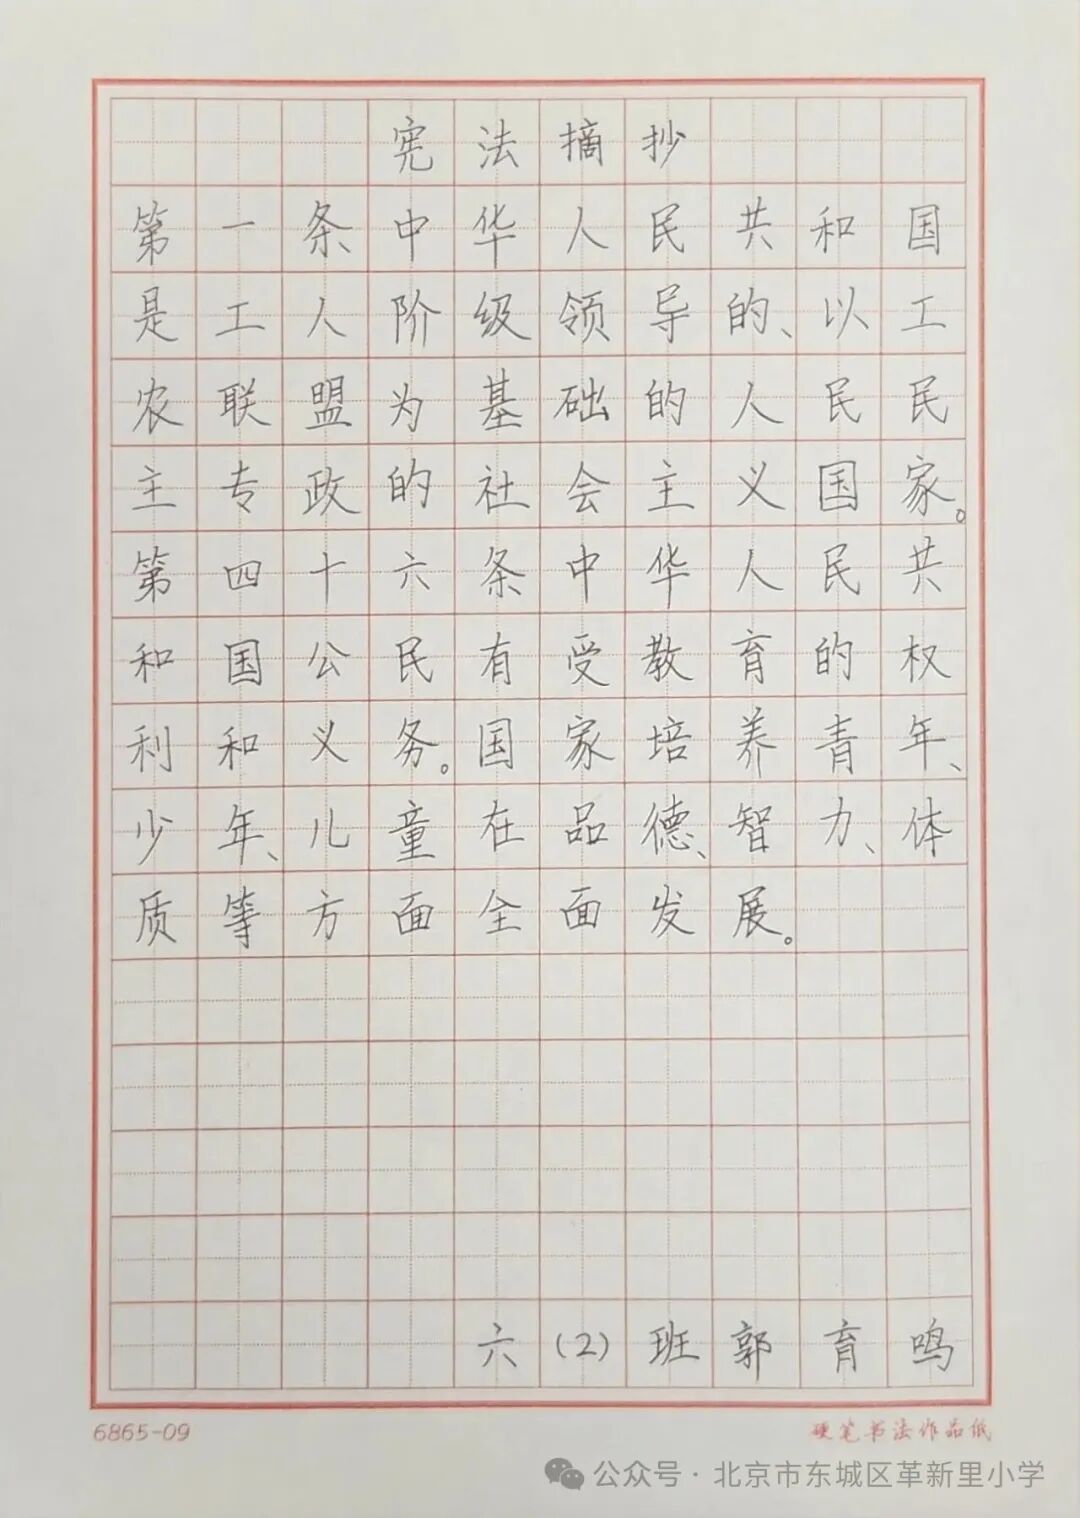 宪法摘抄
第一条中华人民共和国
是工人阶级领导的、以工
农联盟为基础的人民民
主专政的社会主义国家。
第四十六条中华人民共
和国公民有受教育的权
利和义务。国家培养青年、
少年、儿童在品德、智力、体
质等方面全面发展。
六(2)班郭育鸣
6865-09
硬笔书法作品纸
公众号·北京市东城区革新里小学